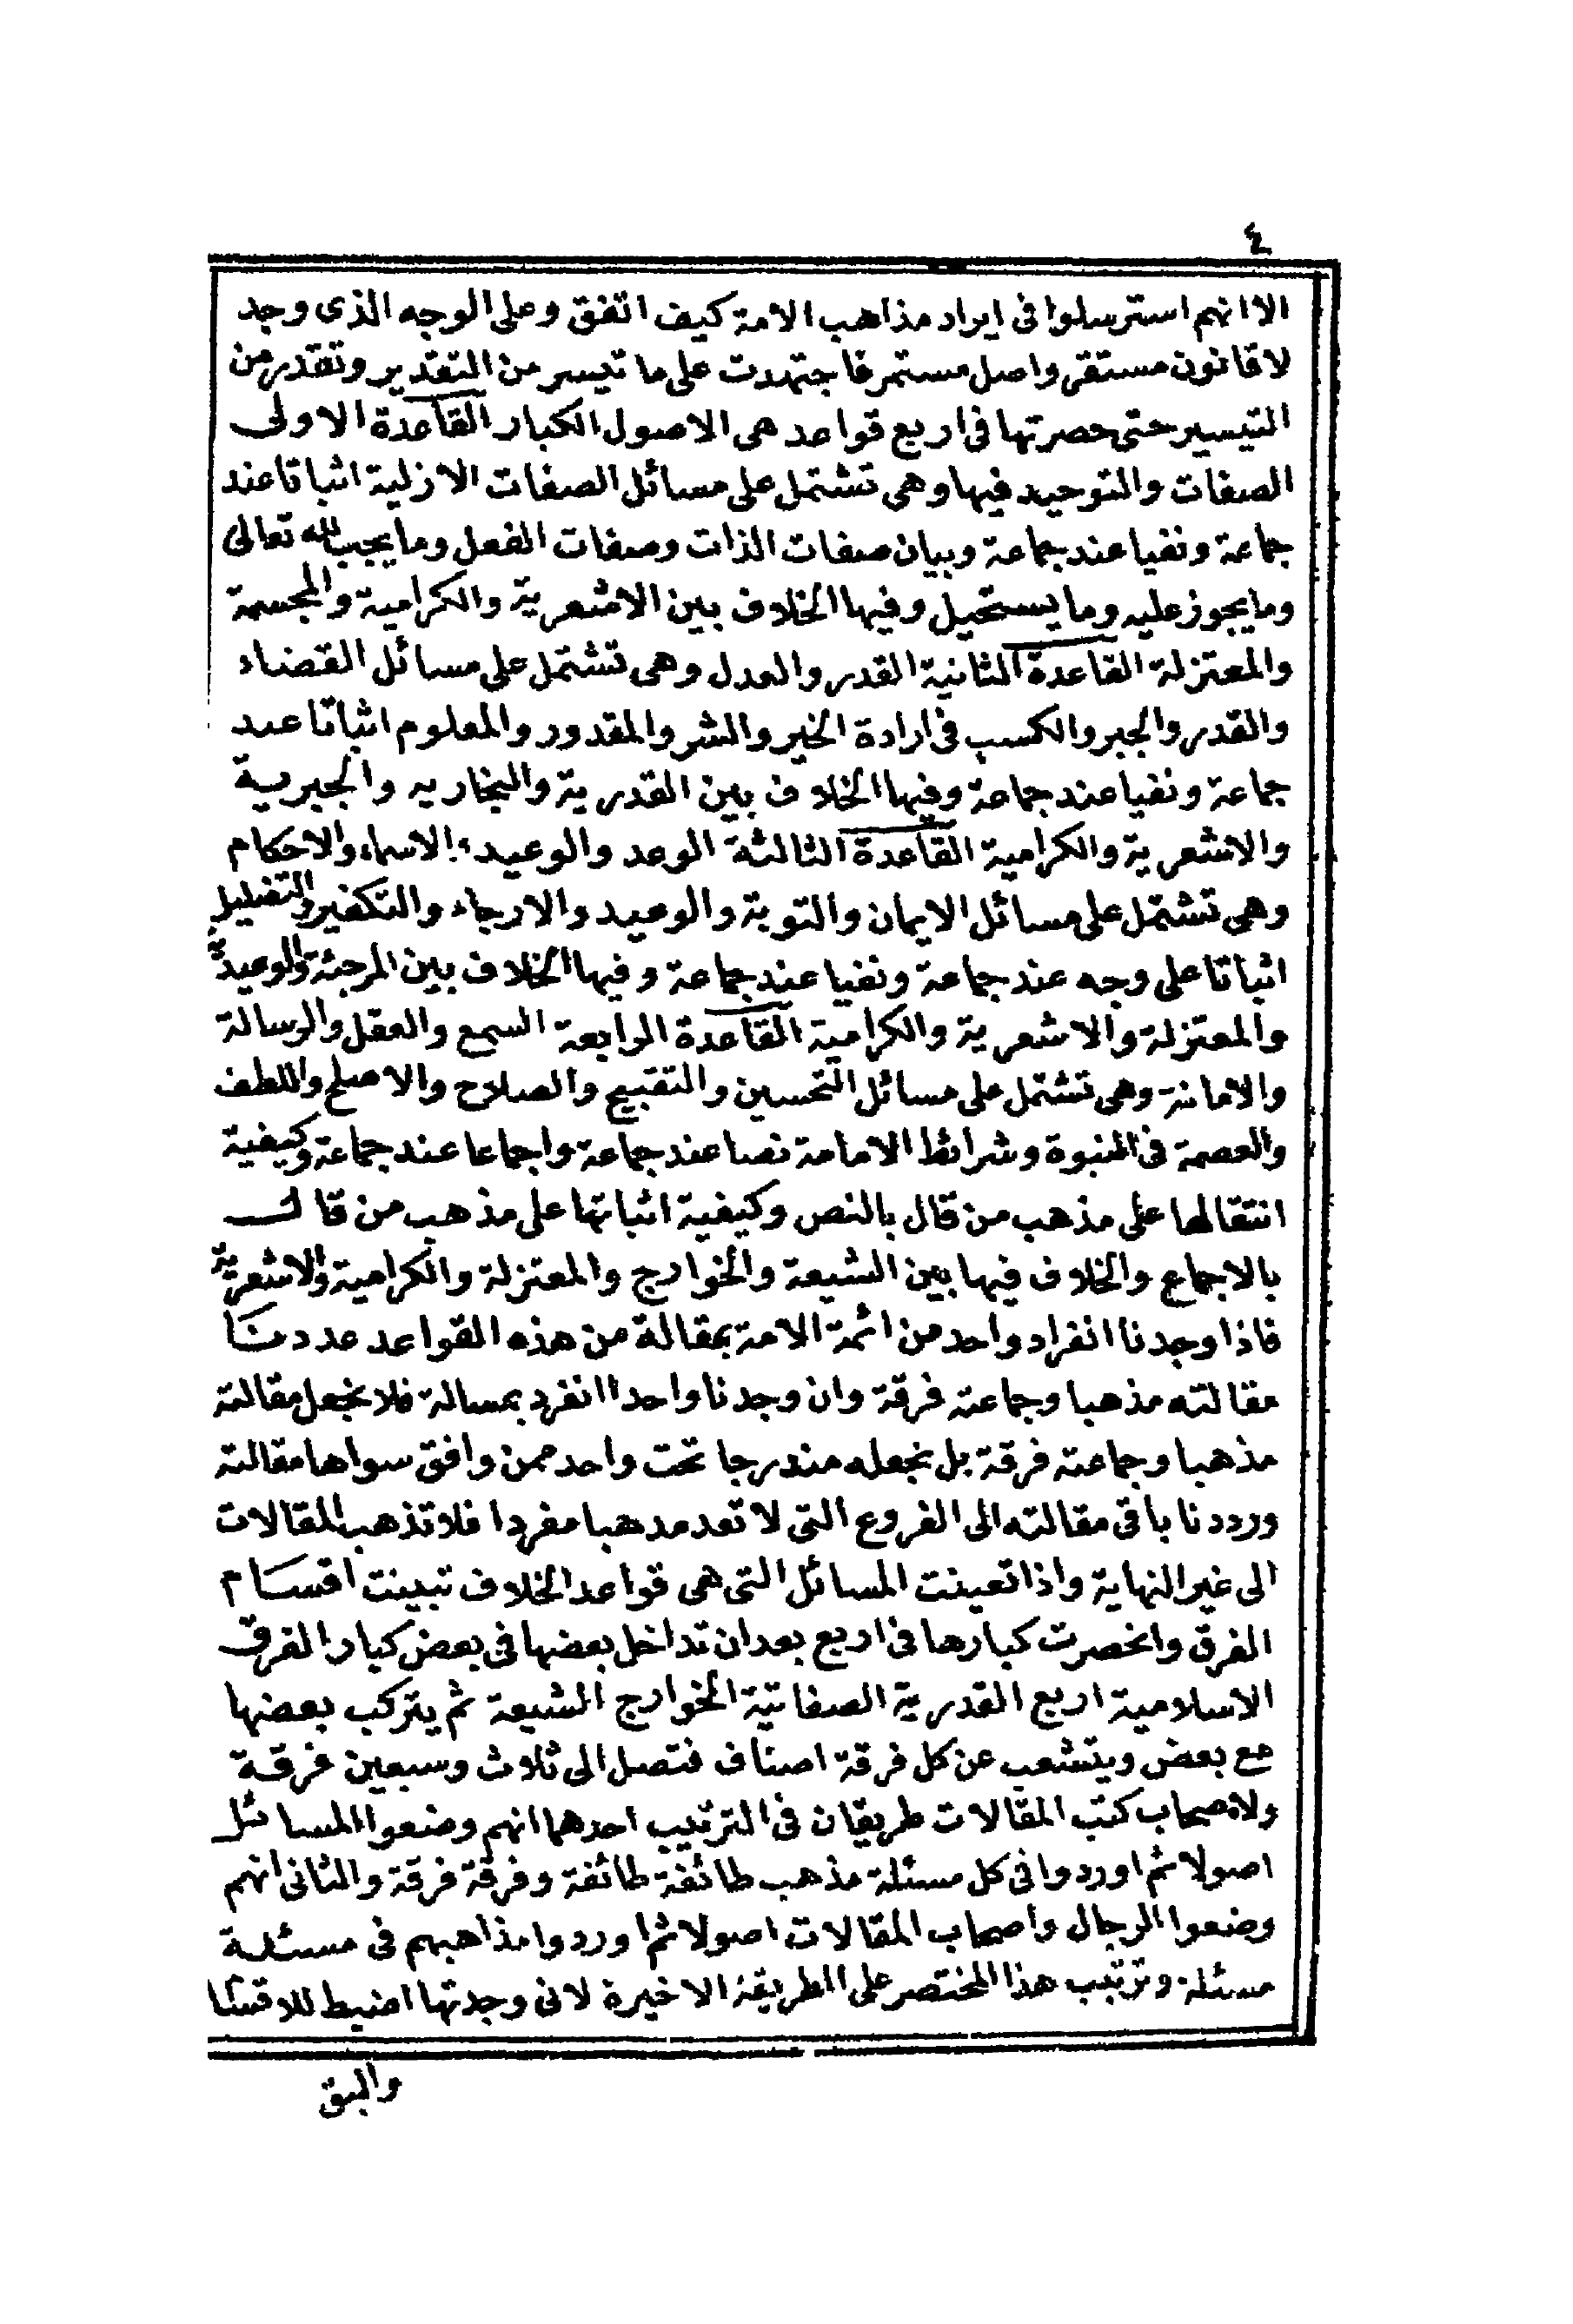 ٤
الا انهم استرسلوا فى ايراد مذاهب الامة كيف اتفق وعلى الوجه الذى وجد
لا قانون مستقر واصل مستمر فاجتهدت على ما تيسر من التقدير وتقدر من
التيسير حتى حصرتها فى اربع قواعد هى الاصول الكبار القاعدة الاولى
الصفات والتوحيد فيها وهى تشتمل على مسائل الصفات الازلية اثباتا عند
جماعة ونفيا عند جماعة وبيان صفات الذات وصفات الفعل وما يجب لله تعالى
وما يجوز عليه وما يستحيل وفيها الخلاف بين الاشعرية والكرامية والمجسمة
والمعتزلة القاعدة الثانية القدر والعدل وهى تشتمل على مسائل القضاء
والقدر والجبر والكسب فى ارادة الخير والشر والمقدور والمعلوم اثباتا عند
جماعة ونفيا عند جماعة وفيها الخلاف بين القدرية والنجاريه والجبرية
والاشعرية والكرامية القاعدة الثالثة الوعد والوعيد والاسماء والاحكام
وهى تشتمل على مسائل الايمان والتوبة والوعيد والارجاء والتكفير والتضليل
اثباتا على وجه عند جماعة ونفيا عند جماعة وفيها الخلاف بين المرجئة والوعيدية
والمعتزلة والاشعرية والكرامية القاعدة الرابعة السمع والعقل والرسالة
والامانة وهى تشتمل على مسائل التحسين والتقبيح والصلاح والاصلح واللطف
والعصمة فى النبوة وشرائط الامامة نصا عند جماعة واجماعا عند جماعة وكيفية
انتقالها على مذهب من قال بالنص وكيفية اثباتها على مذهب من قال
بالاجماع والخلاف فيها بين الشيعة والخوارج والمعتزلة والكرامية والاشعرية
فاذا وجدنا انفراد واحد من ائمة الامة بمقالة من هذه القواعد عددنا
مقالته مذهبا وجماعته فرقة وان وجدنا واحدا انفرد بمسالة فلا نجعل مقالته
مذهبا وجماعته فرقة بل نجعله مندرجا تحت واحد ممن وافق سواها مقالته
ورددنا باقى مقالته الى الفروع التى لا تعد مذهبا مفردا فلا تذهب المقالات
الى غير النهاية واذا تعينت المسائل التى هى قواعد الخلاف تبينت اقسام
الفرق وانحصرت كبارها فى اربع بعد ان تداخل بعضها فى بعض كبار الفرق
الاسلامية اربع القدرية الصفاتية الخوارج الشيعة ثم يتركب بعضها
مع بعض ويتشعب عن كل فرقة اصناف فتصل الى ثلاث وسبعين فرقة
ولاصحاب كتب المقالات طريقان فى الترتيب احدهما انهم وضعوا المسائل
اصولا ثم اوردوا فى كل مسئلة مذهب طائفة طائفة وفرقة فرقة والثانى انهم
وضعوا الرجال واصحاب المقالات اصولا ثم اوردوا مذاهبهم فى مسئلة
مسئلة وترتيب هذا المختصر على الطريقة الاخيرة لانى وجدتها اضبط للاقسام